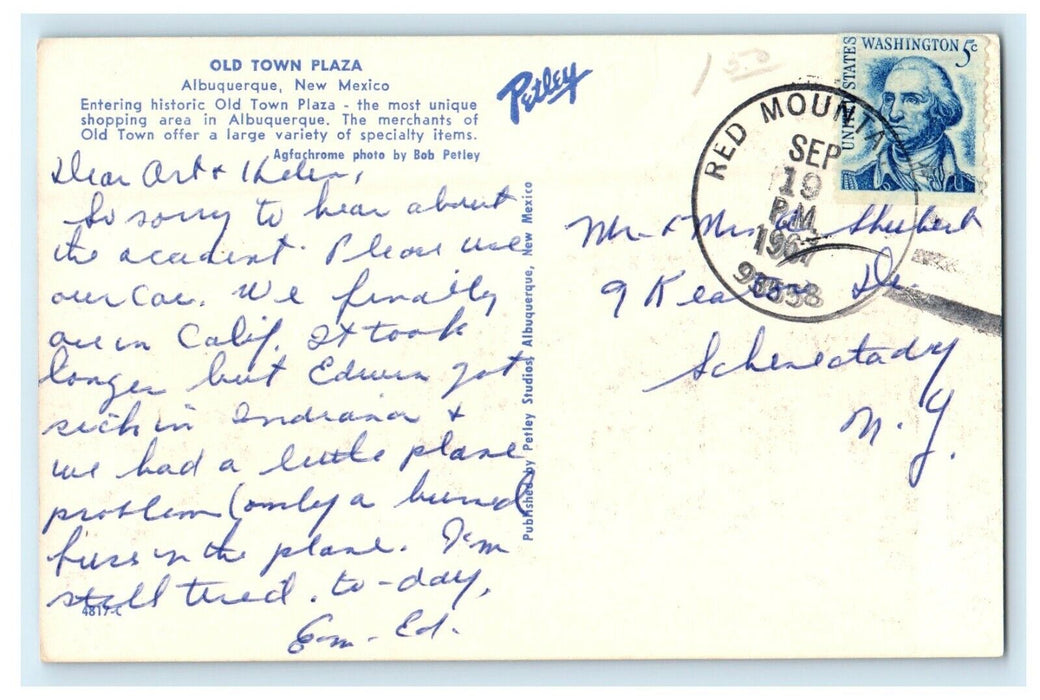 OLD TOWN PLAZA
Albuquerque, New Mexico
Entering historic Old Town Plaza - the most unique
shopping area in Albuquerque. The merchants of
Old Town offer a large variety of specialty items.
Agfachrome photo by Bob Petley
Dear Art & Helen,
So sorry to hear about
the accident. Please use
our car. We finally
are in Calif. It took
longer but Edwin got
sick in Indiana &
we had a little plane
problem (only a burned
fuse in the plane. I'm
still tired. to-day,
Em - Ed.
4817-C
Petley
Published by Petley Studios, Albuquerque, New Mexico
150
UNITED STATES
WASHINGTON 5c
RED MOUNTAIN
SEP
19
P.M.
1967
93558
Mr & Mrs Shubert
9 Dr.
Schenectady
N.Y.